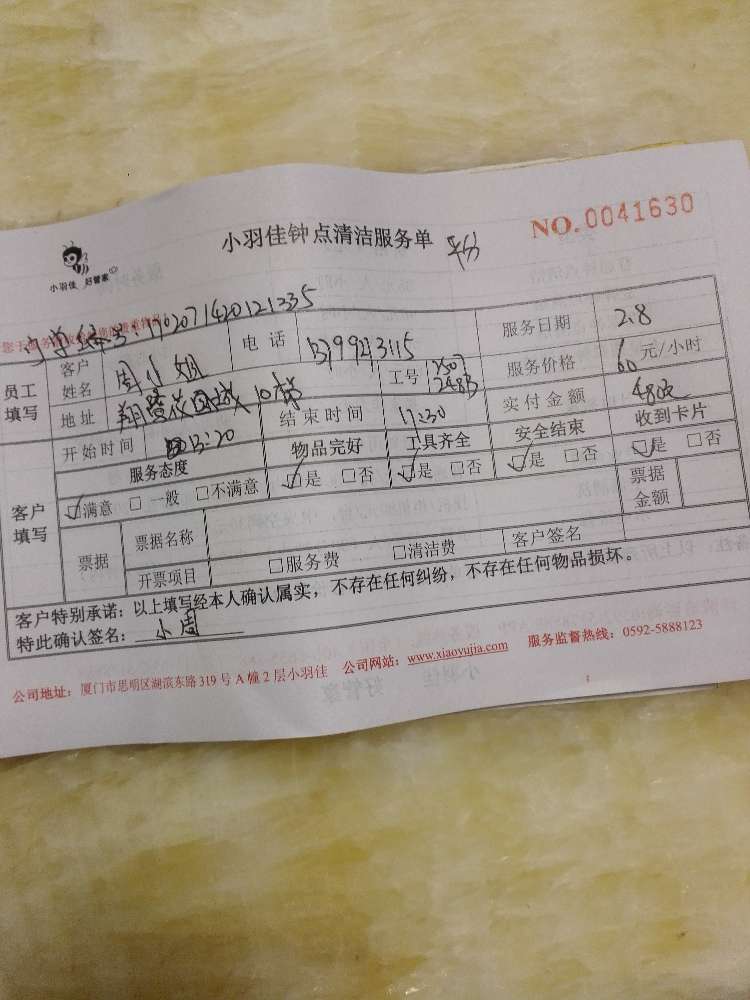 小羽佳 好管家
小羽佳钟点清洁服务单
NO.0041630
订单编号:190207142012 1335
员工填写
客户姓名 周小姐 电话 13799213115 服务日期 2.8
工号 服务价格 60 元/小时
地址 10 结束时间 17:30 实付金额 480
开始时间 13:20 物品完好 工具齐全 安全结束 收到卡片
客户填写
服务态度 ☑满意 □一般 □不满意 ☑是 □否 ☑是 □否 ☑是 □否 ☑是 □否
票据 票据名称 票据金额
开票项目 □服务费 □清洁费 客户签名
客户特别承诺:以上填写经本人确认属实,不存在任何纠纷,不存在任何物品损坏。
特此确认签名: 小周
公司地址:厦门市思明区湖滨东路319号A幢2层小羽佳 公司网站:www.xiaoyujia.com 服务监督热线:0592-5888123